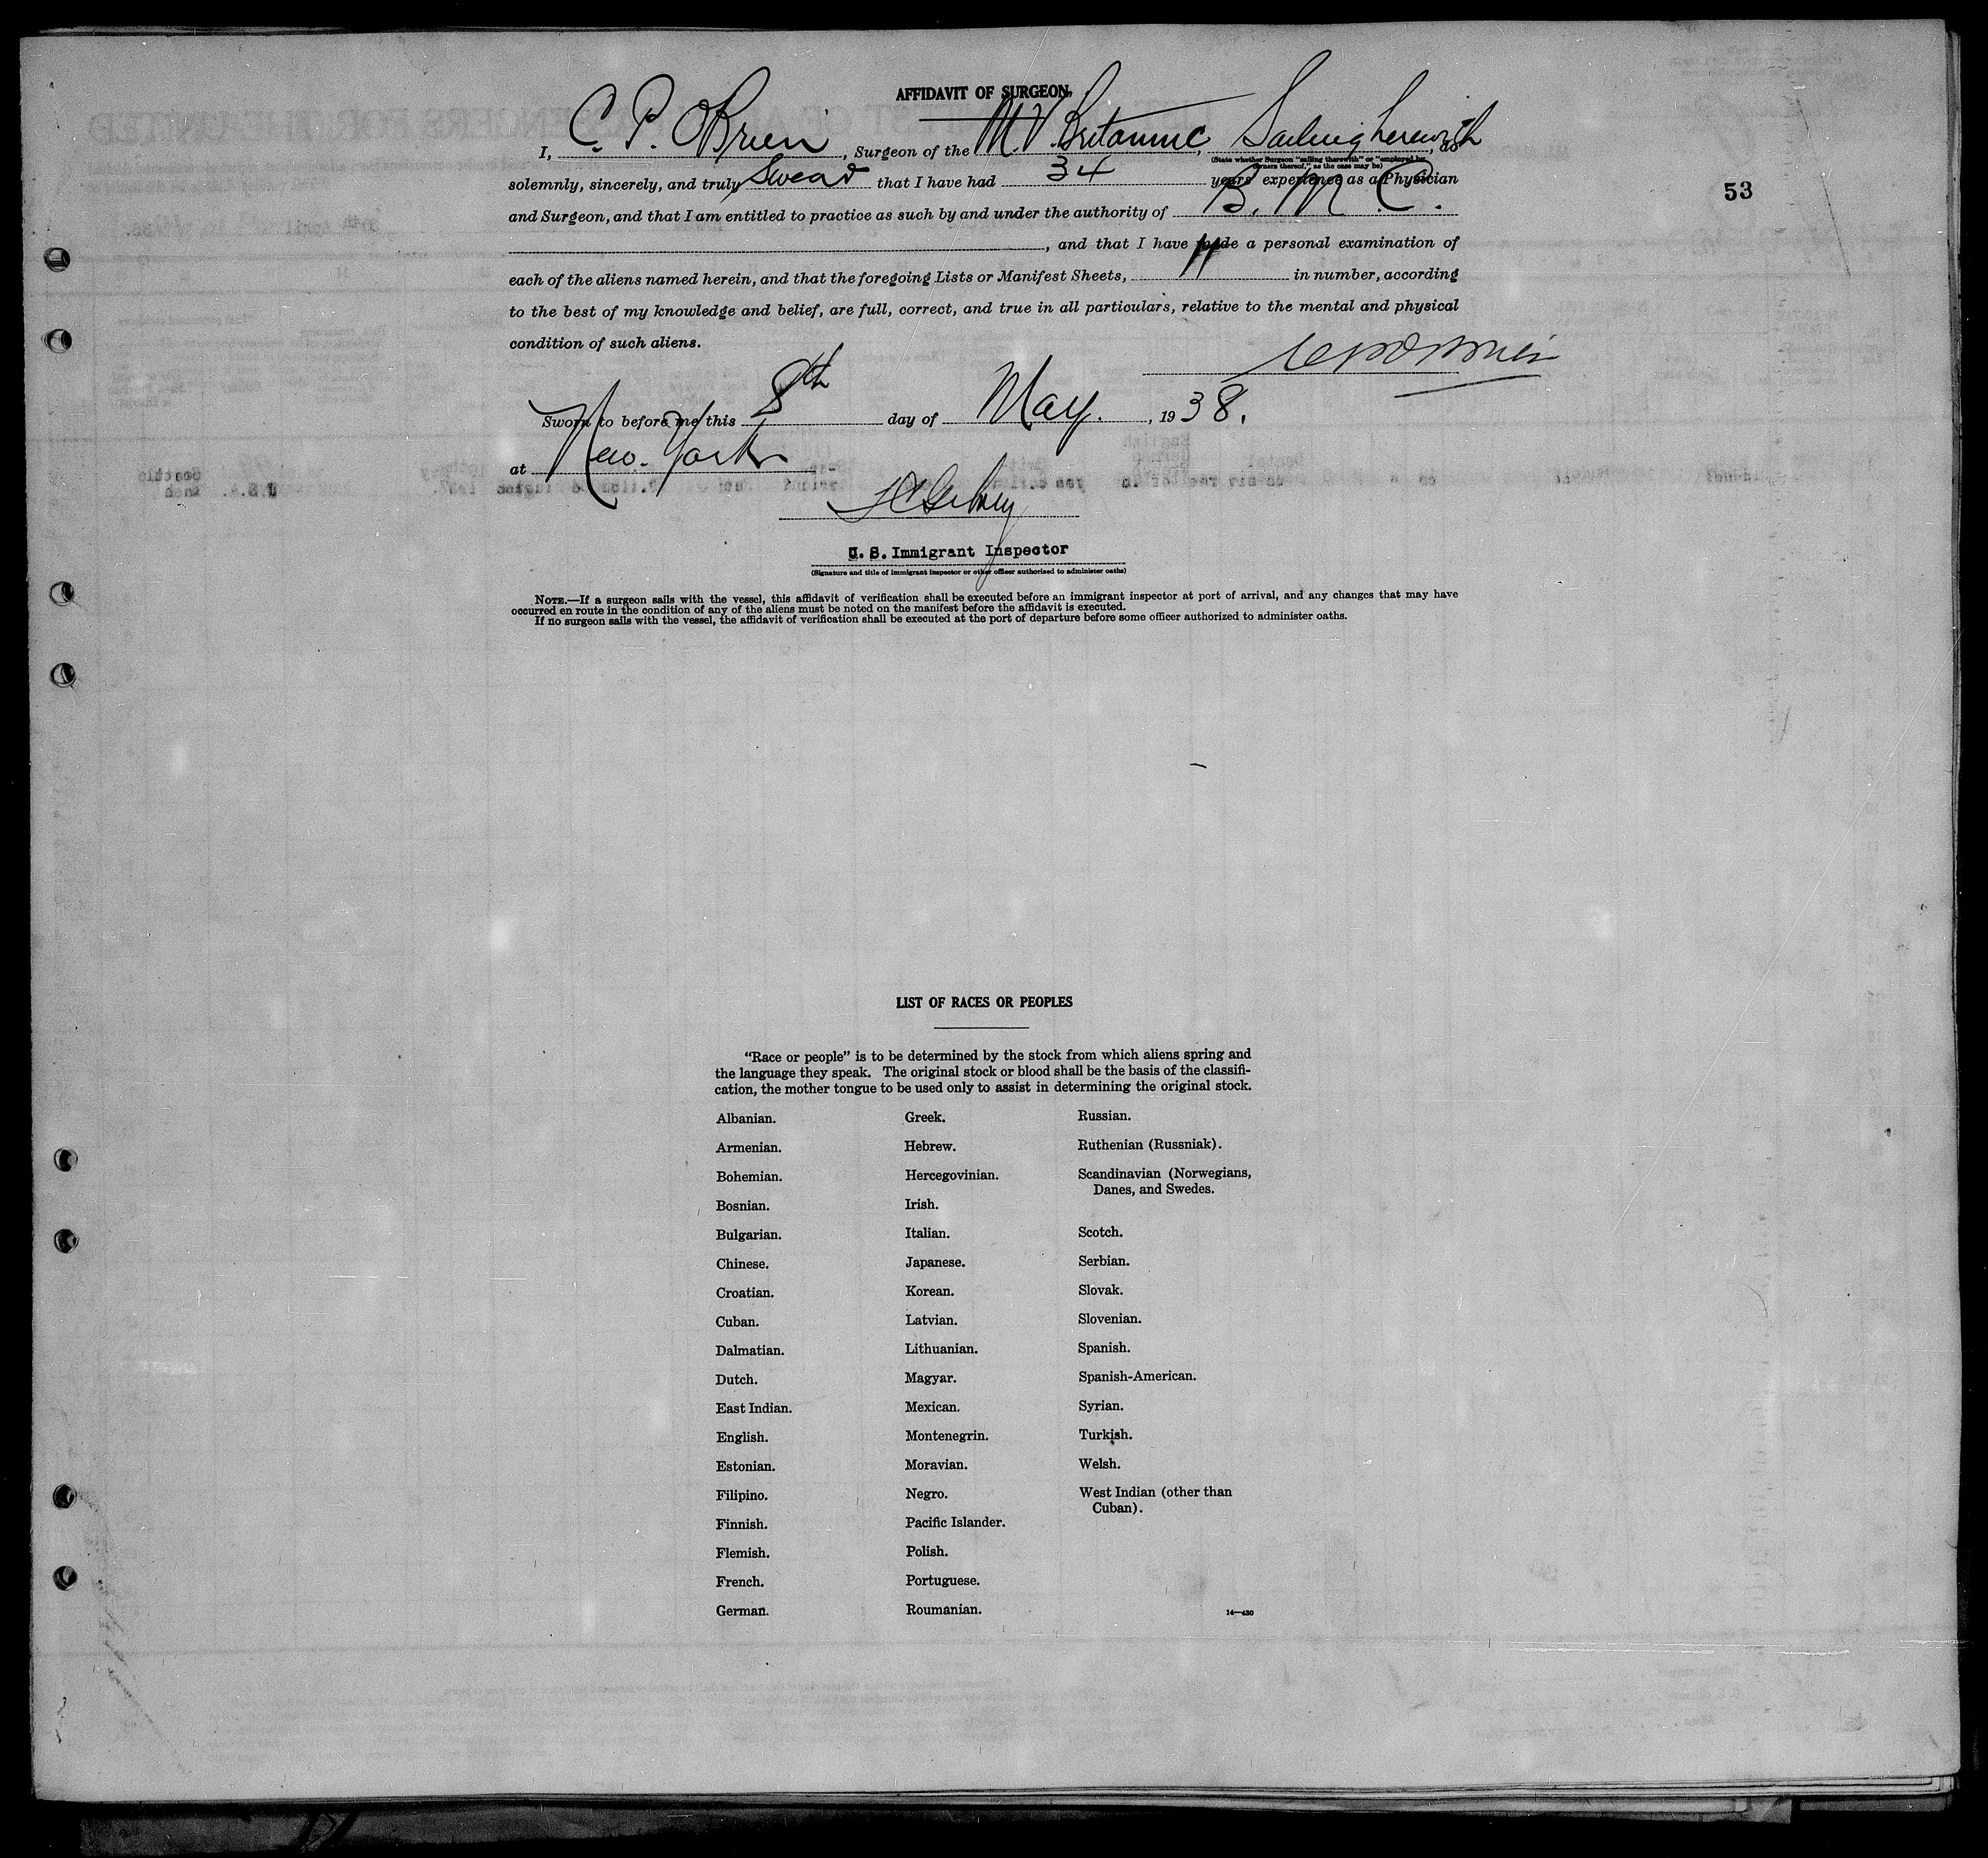 AFFIDAVIT OF SURGEON
I, C. P. O'Brien, Surgeon of the M.V. Britannic, Sailing herewith, do
(State whether Surgeon "sailing therewith" or "employed by owners thereof," as the case may be)
solemnly, sincerely, and truly Swear that I have had 34 years' experience as a Physician
and Surgeon, and that I am entitled to practice as such by and under the authority of B. M. C.
, and that I have made a personal examination of
each of the aliens named herein, and that the foregoing Lists or Manifest Sheets, 11 in number, according
to the best of my knowledge and belief, are full, correct, and true in all particulars, relative to the mental and physical
condition of such aliens.
Sworn to before me this 8th day of May. , 1938.
at New York
U. S. Immigrant Inspector
(Signature and title of immigrant inspector or other officer authorized to administer oaths)
NOTE.—If a surgeon sails with the vessel, this affidavit of verification shall be executed before an immigrant inspector at port of arrival, and any changes that may have
occurred en route in the condition of any of the aliens must be noted on the manifest before the affidavit is executed.
If no surgeon sails with the vessel, the affidavit of verification shall be executed at the port of departure before some officer authorized to administer oaths.
53
LIST OF RACES OR PEOPLES
"Race or people" is to be determined by the stock from which aliens spring and
the language they speak. The original stock or blood shall be the basis of the classifi-
cation, the mother tongue to be used only to assist in determining the original stock.
Albanian.
Armenian.
Bohemian.
Bosnian.
Bulgarian.
Chinese.
Croatian.
Cuban.
Dalmatian.
Dutch.
East Indian.
English.
Estonian.
Filipino.
Finnish.
Flemish.
French.
German.
Greek.
Hebrew.
Hercegovinian.
Irish.
Italian.
Japanese.
Korean.
Latvian.
Lithuanian.
Magyar.
Mexican.
Montenegrin.
Moravian.
Negro.
Pacific Islander.
Polish.
Portuguese.
Roumanian.
Russian.
Ruthenian (Russniak).
Scandinavian (Norwegians,
Danes, and Swedes.
Scotch.
Serbian.
Slovak.
Slovenian.
Spanish.
Spanish-American.
Syrian.
Turkish.
Welsh.
West Indian (other than
Cuban).
14—430